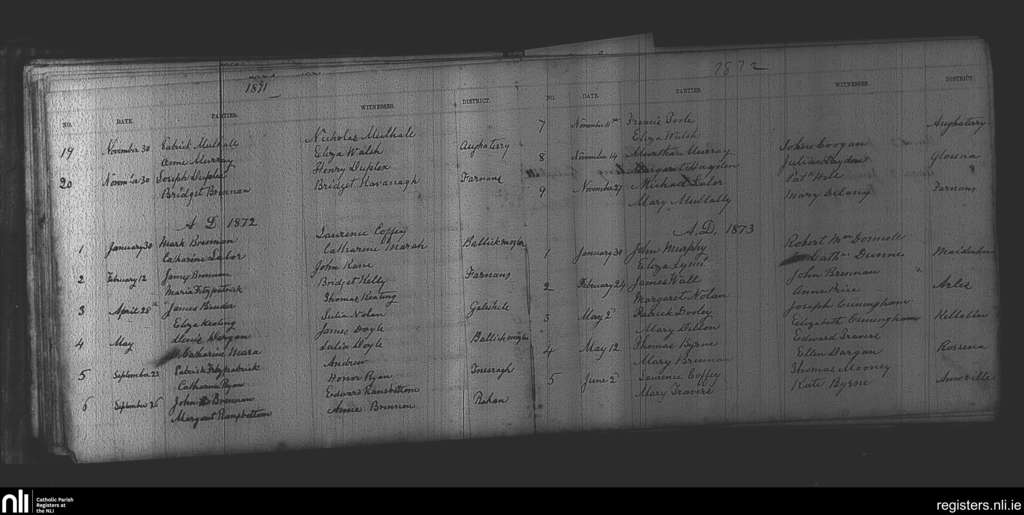 1871
NO. DATE. PARTIES. WITNESSES. DISTRICT.
19 November 30 Patrick Mulhall Nicholas Mulhall Aughaterry
Anne Murray Eliza Walsh
20 November 30 Joseph Duplex Henry Duplex Farnans
Bridget Brennan Bridget Kavanagh
A D 1872
1 January 30 Mark Brennan Laurence Coffey
Catharine Lalor Catharine Marah
2 February 12 James Brennan John Kane Farnans
Maria Fitzpatrick Bridget Kelly
3 April 28th James Thomas Keating
Eliza Keating Julia Nolan
4 May Dargan James Doyle
Catharine Meara Julia Doyle
5 September 23 Patrick Fitzpatrick Andrew
Catharine Ryan Honor Ryan
6 September 26 John Brennan Edward Ransbottom
Margaret Rampbottom Annie Brennan
1872
NO. DATE. PARTIES. WITNESSES. DISTRICT.
7 November 11th Francis Toole Aughaterry
Eliza Walsh
8 November 14 Murray John Coogan
Margaret Julia
9 November 27 Michael Lalor Patk Farnans
Mary Mullally Mary Delany
A.D. 1873
1 January 30 John Murphy Robert
Eliza Cathne Dunne
2 February 24 James Wall John Brennan Arles
Margaret Nolan Anne Price
3 May 2d Patrick Dooley Joseph Cunningham
Mary Dillon Elizabeth Cunningham
4 May 12 Thomas Byrne Edward Travers Rossena
Mary Brennan Ellen Dargan
5 June 2d Laurence Coffey Thomas Mooney
Mary Travers Kate Byrne
nli Catholic Parish
Registers at
the NLI
registers.nli.ie